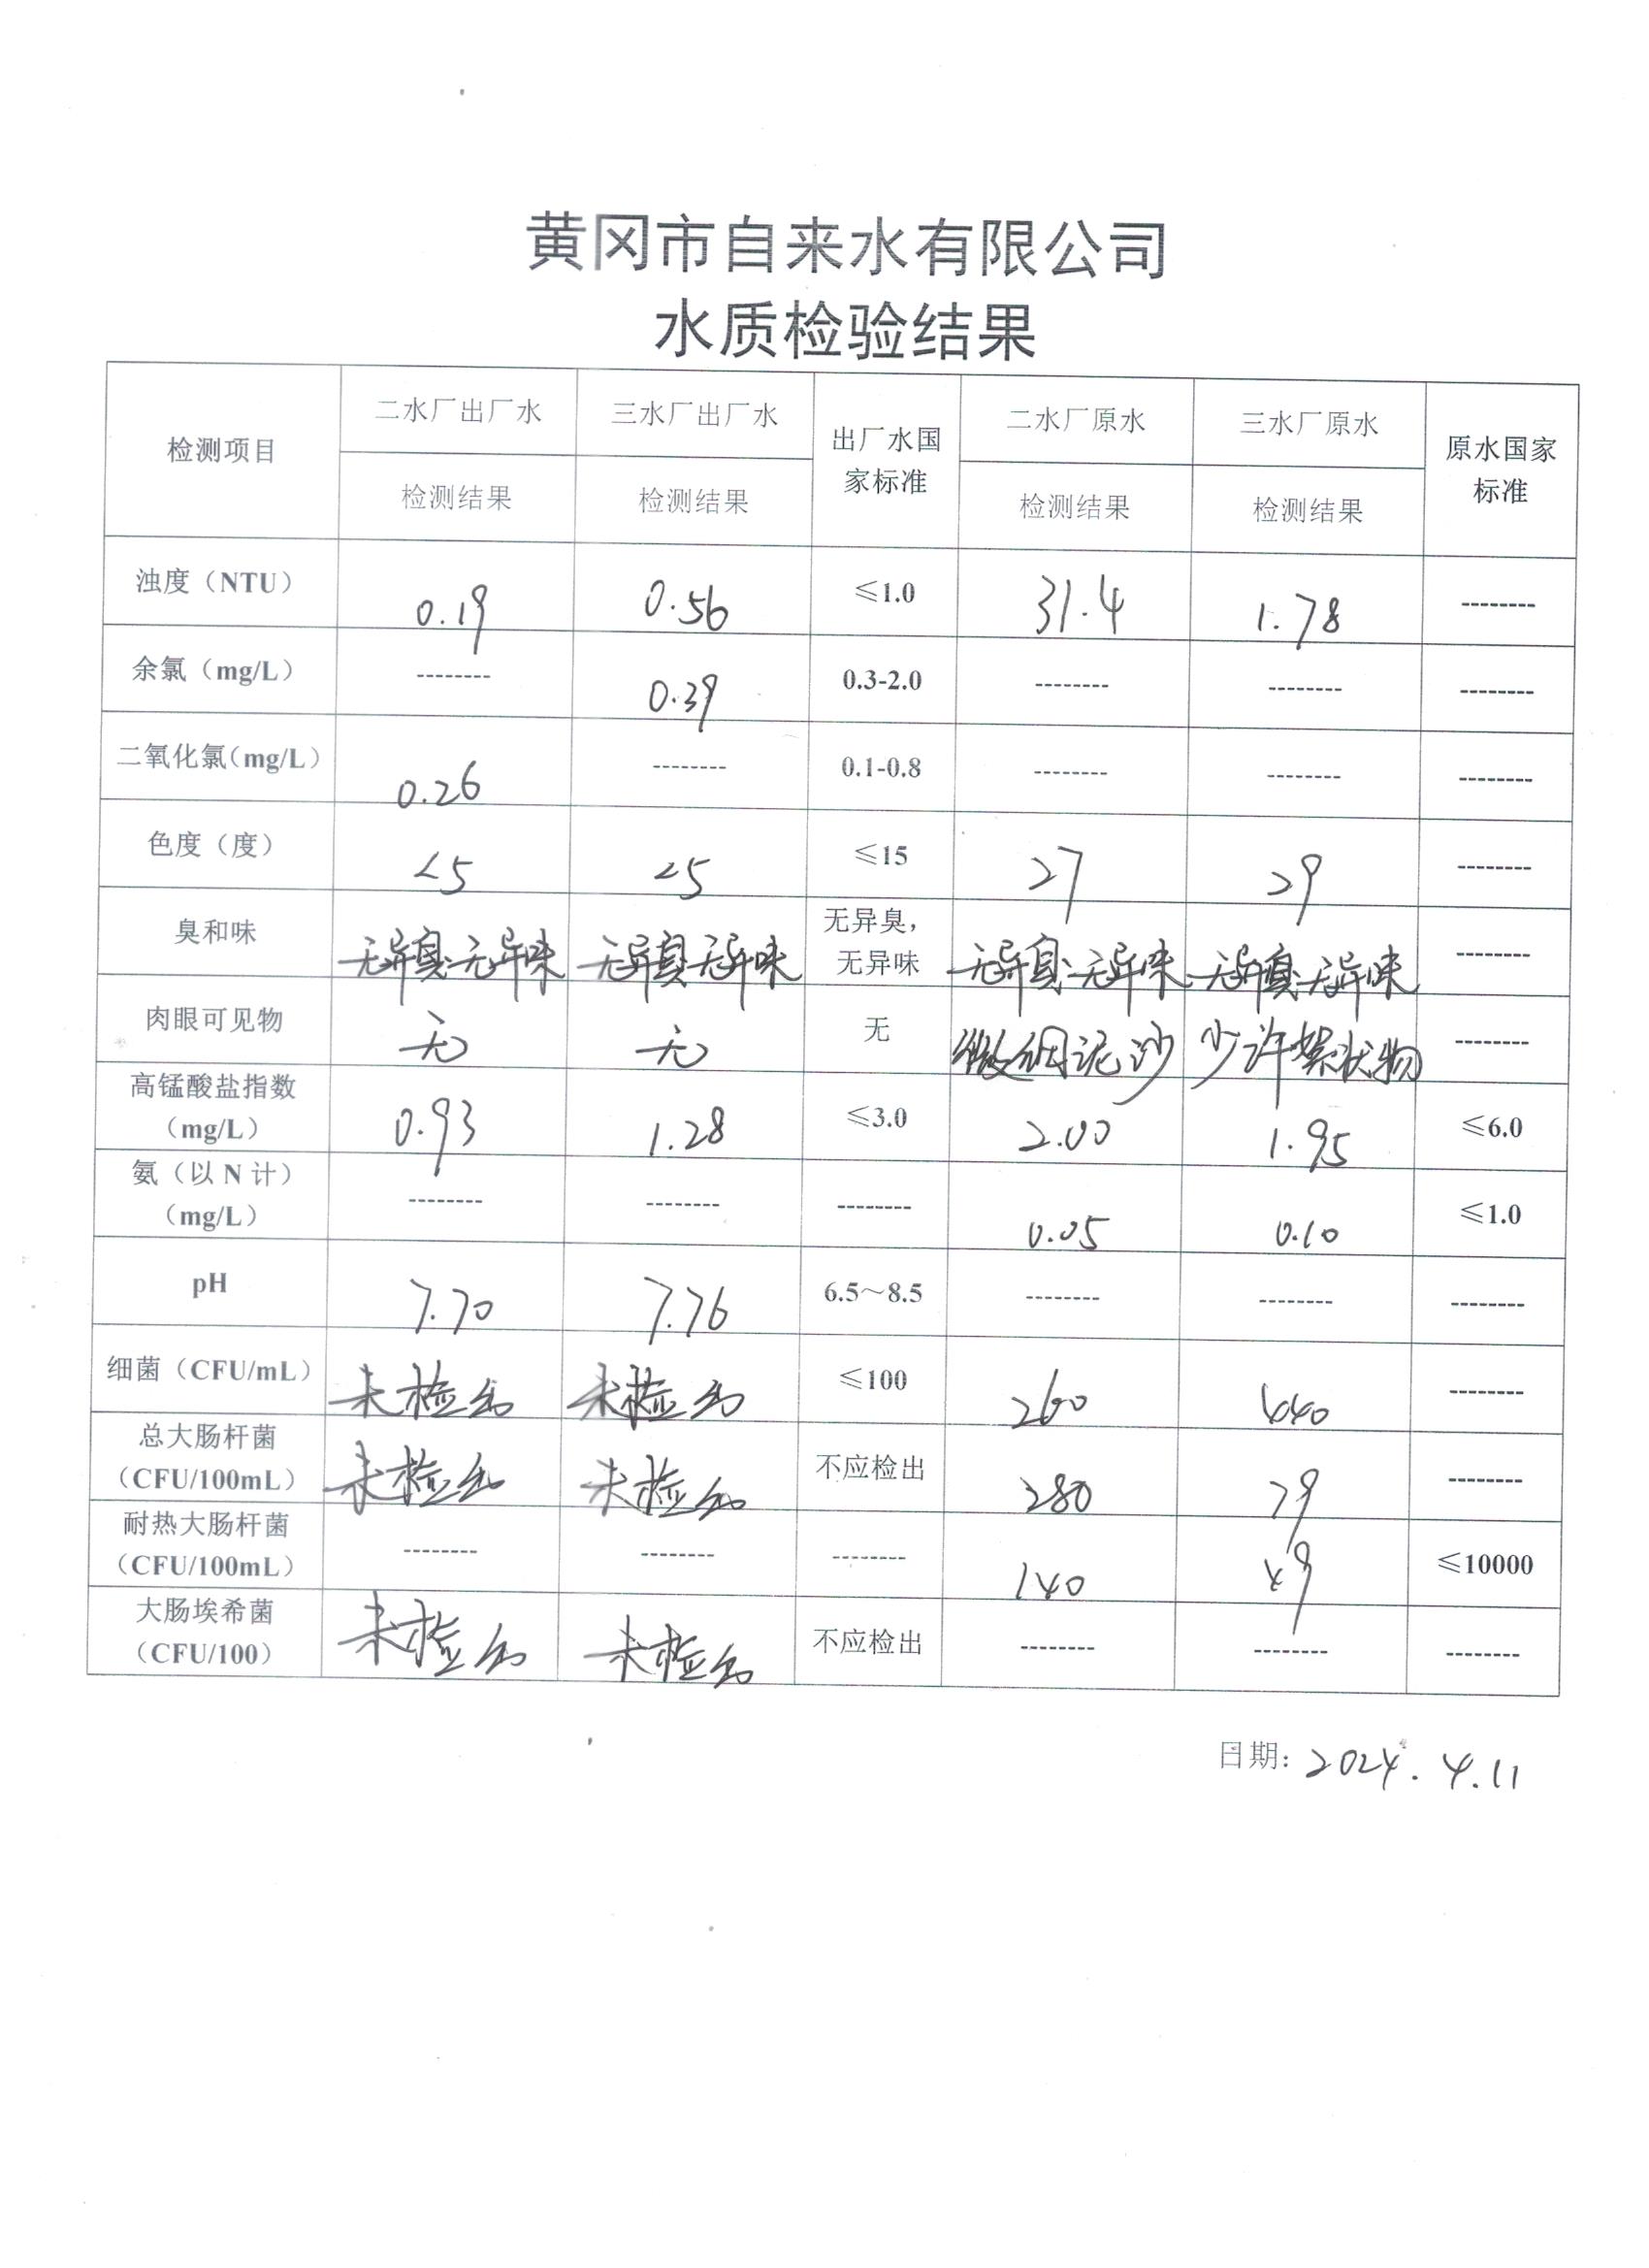 黄冈市自来水有限公司
水质检验结果
检测项目 二水厂出厂水 三水厂出厂水 出厂水国家标准 二水厂原水 三水厂原水 原水国家标准
检测结果 检测结果 检测结果 检测结果
浊度（NTU） 0.19 0.56 ≤1.0 31.4 1.78 --------
余氯（mg/L） -------- 0.39 0.3-2.0 -------- -------- --------
二氧化氯（mg/L） 0.26 -------- 0.1-0.8 -------- -------- --------
色度（度） <5 <5 ≤15 27 29 --------
臭和味 无异臭、无异味 无异臭无异味 无异臭，无异味 无异臭、无异味 无异臭、无异味 --------
肉眼可见物 无 无 无 微细泥沙 少许絮状物 --------
高锰酸盐指数（mg/L） 0.93 1.28 ≤3.0 2.00 1.95 ≤6.0
氨（以N计）（mg/L） -------- -------- -------- 0.05 0.10 ≤1.0
pH 7.70 7.76 6.5～8.5 -------- -------- --------
细菌（CFU/mL） 未检出 未检出 ≤100 260 440 --------
总大肠杆菌（CFU/100mL） 未检出 未检出 不应检出 280 79 --------
耐热大肠杆菌（CFU/100mL） -------- -------- -------- 140 49 ≤10000
大肠埃希菌（CFU/100） 未检出 未检出 不应检出 -------- -------- --------
日期: 2024.4.11